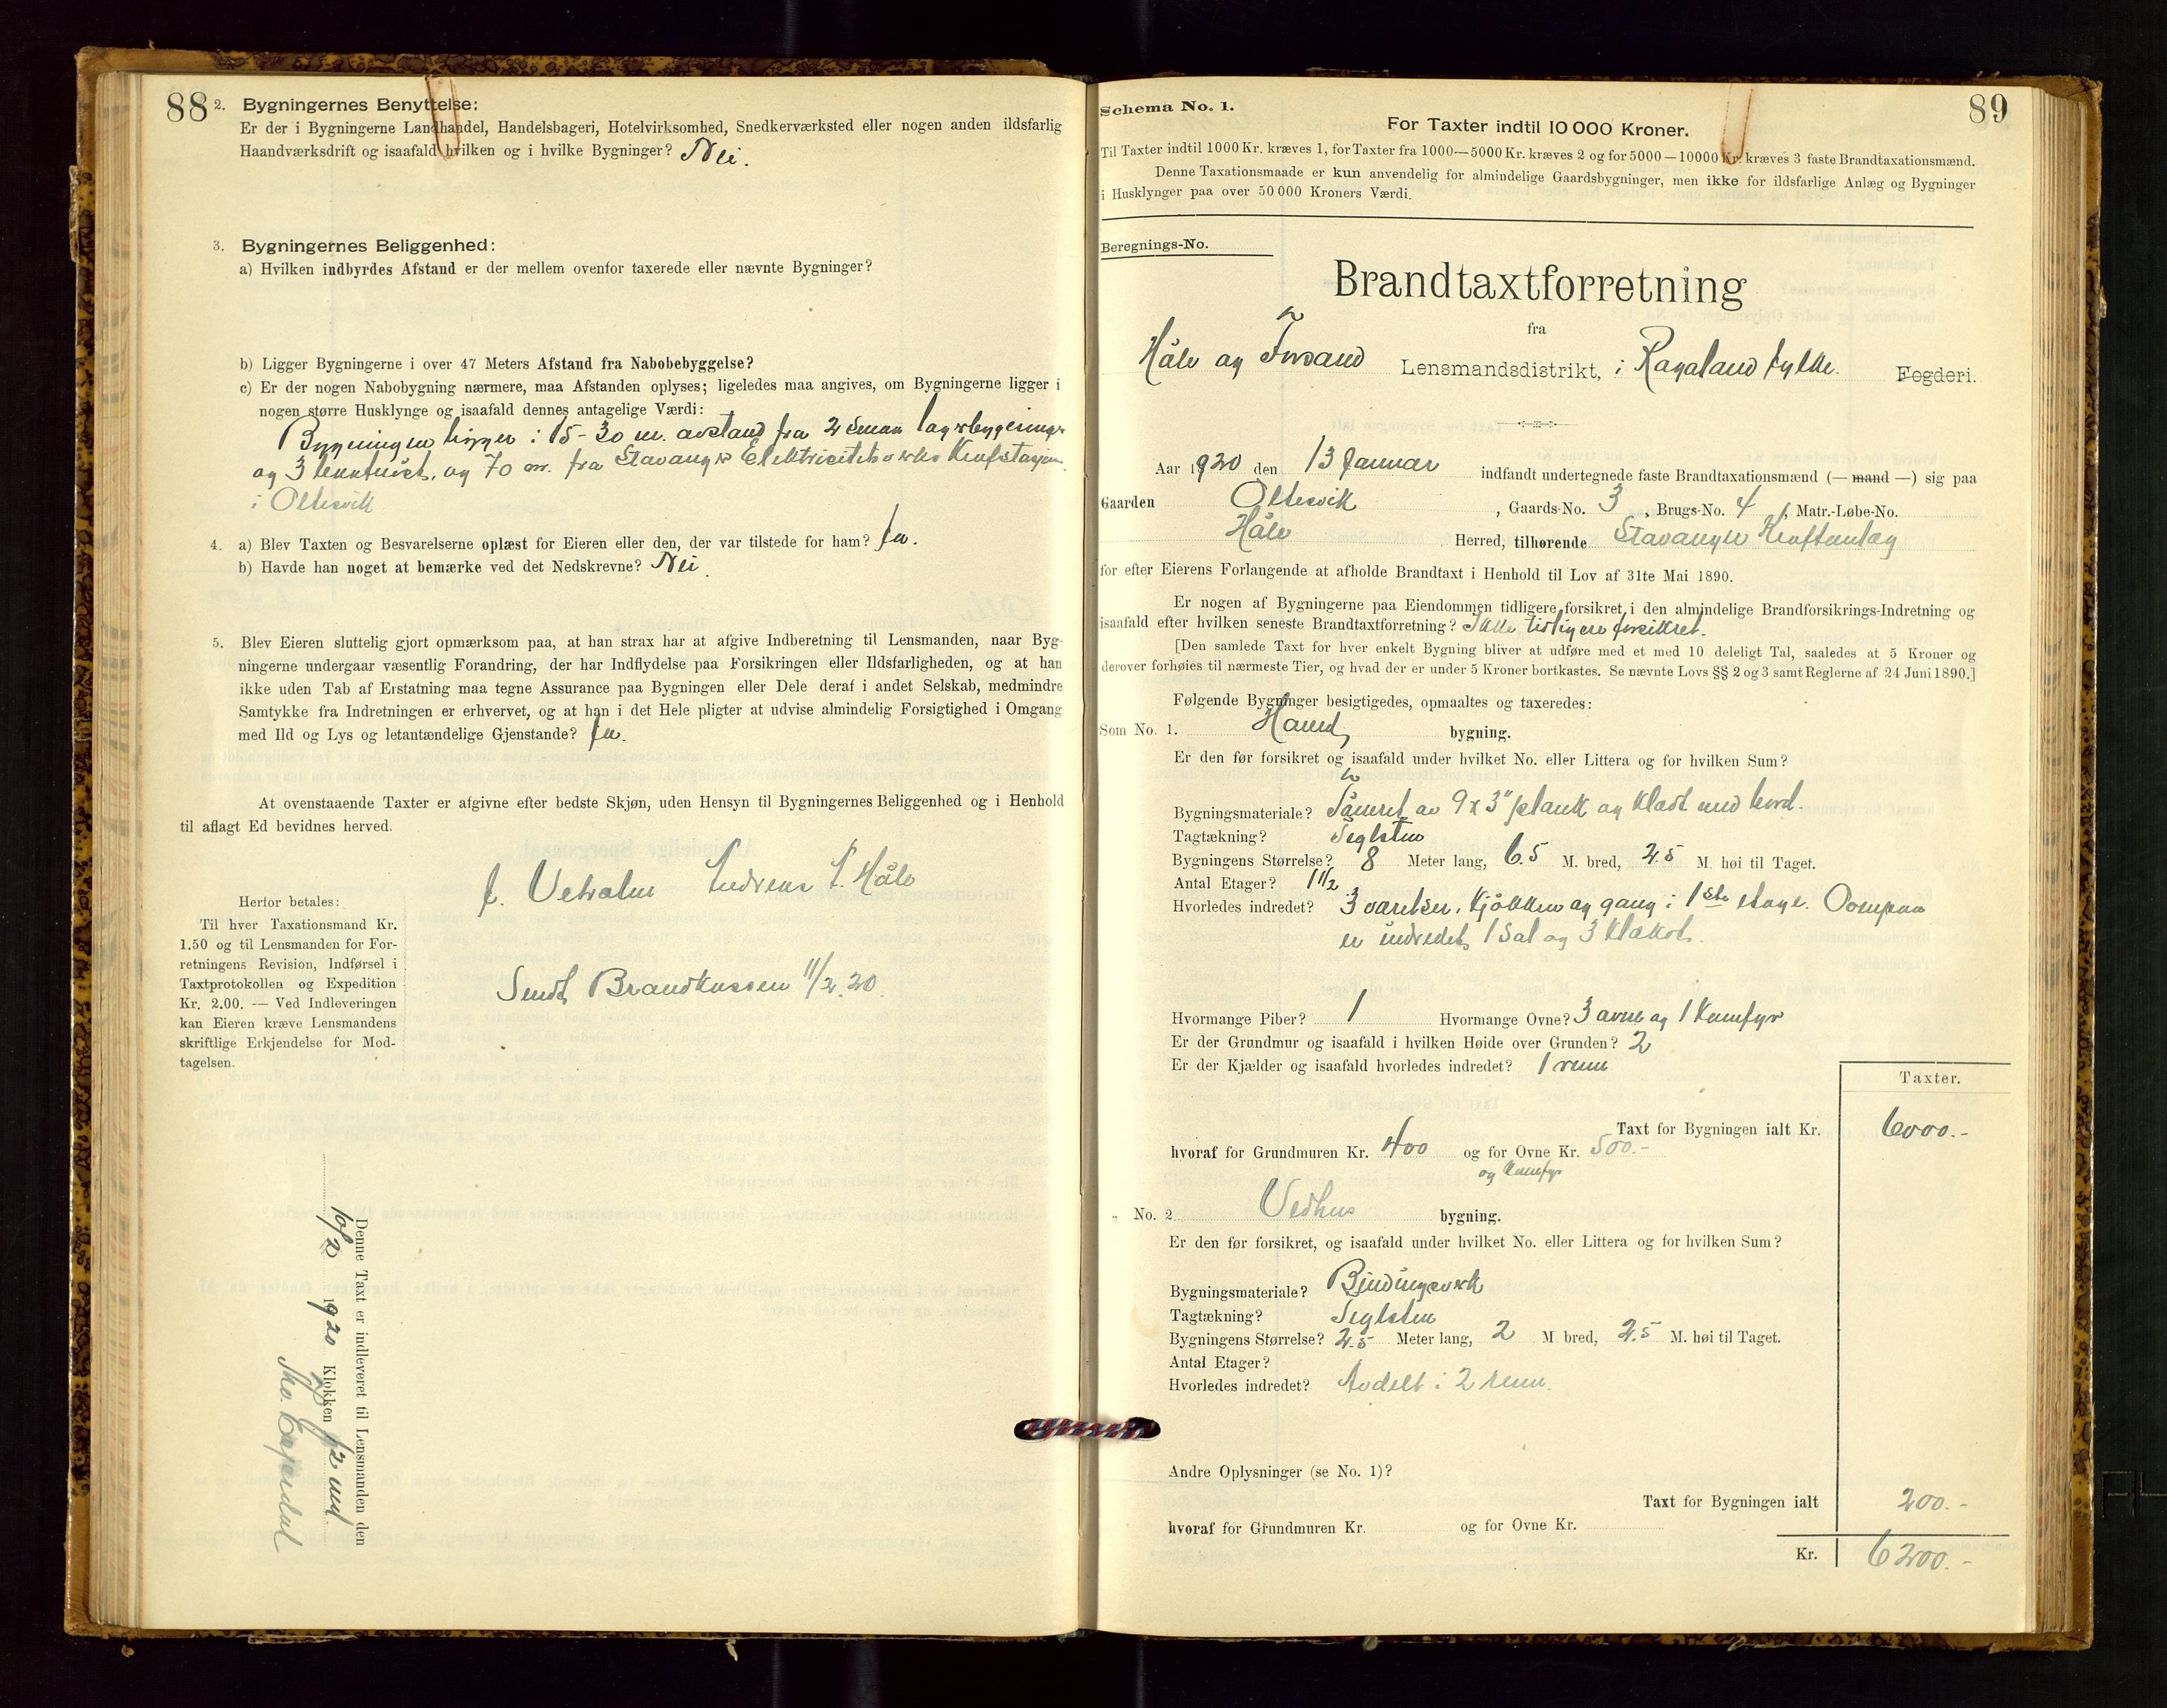 88
2. Bygningernes Benyttelse:
Er der i Bygningerne Landhandel, Handelsbageri, Hotelvirksomhed, Snedkerværksted eller nogen anden ildsfarlig
Haandværksdrift og isaafald hvilken og i hvilke Bygninger? Nei.
3. Bygningernes Beliggenhed:
a) Hvilken indbyrdes Afstand er der mellem ovenfor taxerede eller nævnte Bygninger?
b) Ligger Bygningerne i over 47 Meters Afstand fra Nabobebyggelse?
c) Er der nogen Nabobygning nærmere, maa Afstanden oplyses; ligeledes maa angives, om Bygningerne ligger i
nogen større Husklynge og isaafald dennes antagelige Værdi:
Bygningen ligger i 15-30 m. avstand fra 2 smaa lagerbygninger
og 3 og 70 m. fra Stavanger Elektricitetsverks Kraftstasjon
i Oltesvik
4. a) Blev Taxten og Besvarelserne oplæst for Eieren eller den, der var tilstede for ham? Ja.
b) Havde han noget at bemærke ved det Nedskrevne? Nei
5. Blev Eieren sluttelig gjort opmærksom paa, at han strax har at afgive Indberetning til Lensmanden, naar Byg-
ningerne undergaar væsentlig Forandring, der har Indflydelse paa Forsikringen eller Ildsfarligheden, og at han
ikke uden Tab af Erstatning maa tegne Assurance paa Bygningen eller Dele deraf i andet Selskab, medmindre
Samtykke fra Indretningen er erhvervet, og at han i det Hele pligter at udvise almindelig Forsigtighed i Omgang
med Ild og Lys og letantændelige Gjenstande? Ja.
At ovenstaaende Taxter er afgivne efter bedste Skjøn, uden Hensyn til Bygningernes Beliggenhed og i Henhold
til aflagt Ed bevidnes herved.
Håle
Sendt Brandkassen 11/2.20.
Herfor betales:
Til hver Taxationsmand Kr.
1.50 og til Lensmanden for For-
retningens Revision, Indførsel i
Taxtprotokollen og Expedition
Kr. 2.00. — Ved Indleveringen
kan Eieren kræve Lensmandens
skriftlige Erkjendelse for Mod-
tagelsen.
Denne Taxt er indleveret til Lensmanden den
10/2 1920 Klokken 12 md.
Tho. Espedal
Schema No. 1.
89
For Taxter indtil 10 000 Kroner.
Til Taxter indtil 1000 Kr. kræves 1, for Taxter fra 1000—5000 Kr. kræves 2 og for 5000—10000 Kr. kræves 3 faste Brandtaxationsmænd.
Denne Taxationsmaade er kun anvendelig for almindelige Gaardsbygninger, men ikke for ildsfarlige Anlæg og Bygninger
i Husklynger paa over 50 000 Kroners Værdi.
Beregnings-No.
Brandtaxtforretning
fra
Håle og Forsand Lensmandsdistrikt, i Rogaland fylke. Fogderi.
Aar 1920 den 13 Januar indfandt undertegnede faste Brandtaxationsmænd (— mand —) sig paa
Gaarden Oltesvik, Gaards-No. 3, Brugs-No. 4, Matr.-Løbe-No.
Håle Herred, tilhørende Stavanger Kraftanlæg
for efter Eierens Forlangende at afholde Brandtaxt i Henhold til Lov af 31te Mai 1890.
Er nogen af Bygningerne paa Eiendommen tidligere forsikret i den almindelige Brandforsikrings-Indretning og
isaafald efter hvilken seneste Brandtaxtforretning? Ikke tidligere forsikret.
[Den samlede Taxt for hver enkelt Bygning bliver at udføre med et med 10 deleligt Tal, saaledes at 5 Kroner og
derover forhøies til nærmeste Tier, og hvad der er under 5 Kroner bortkastes. Se nævnte Lovs §§ 2 og 3 samt Reglerne af 24 Juni 1890.]
Følgende Bygninger besigtigedes, opmaaltes og taxeredes:
Som No. 1. bygning.
Er den før forsikret og isaafald under hvilket No. eller Littera og for hvilken Sum?
Bygningsmateriale? av 9 x 3" plank og klædt med bord.
Tagtækning? Teglsten
Bygningens Størrelse? 8 Meter lang, 6.5 M. bred, 2.5 M. høi til Taget.
Antal Etager? 1 1/2
Hvorledes indredet? 3 værelser, kjøkken og gang i 1ste etage. Ovenpaa
er indredet 1 sal og 3
Hvormange Piber? 1 Hvormange Ovne? 3 ovne og 1 komfyr
Er der Grundmur og isaafald i hvilken Høide over Grunden? 2
Er der Kjælder og isaafald hvorledes indredet? 1 rum
Taxter.
Taxt for Bygningen ialt Kr. 6000.-
hvoraf for Grundmuren Kr. 400 og for Ovne Kr. 500.-
og komfyr
" No. 2 Vedhus bygning.
Er den før forsikret, og isaafald under hvilket No. eller Littera og for hvilken Sum?
Bygningsmateriale? Bindingsverk
Tagtækning? Teglsten
Bygningens Størrelse? 2.5 Meter lang, 2 M. bred, 2.5 M. høi til Taget.
Antal Etager?
Hvorledes indredet? Avdelt i 2 rum.
Andre Oplysninger (se No. 1)?
Taxt for Bygningen ialt 200.-
hvoraf for Grundmuren Kr. og for Ovne Kr.
Kr. 6200.-